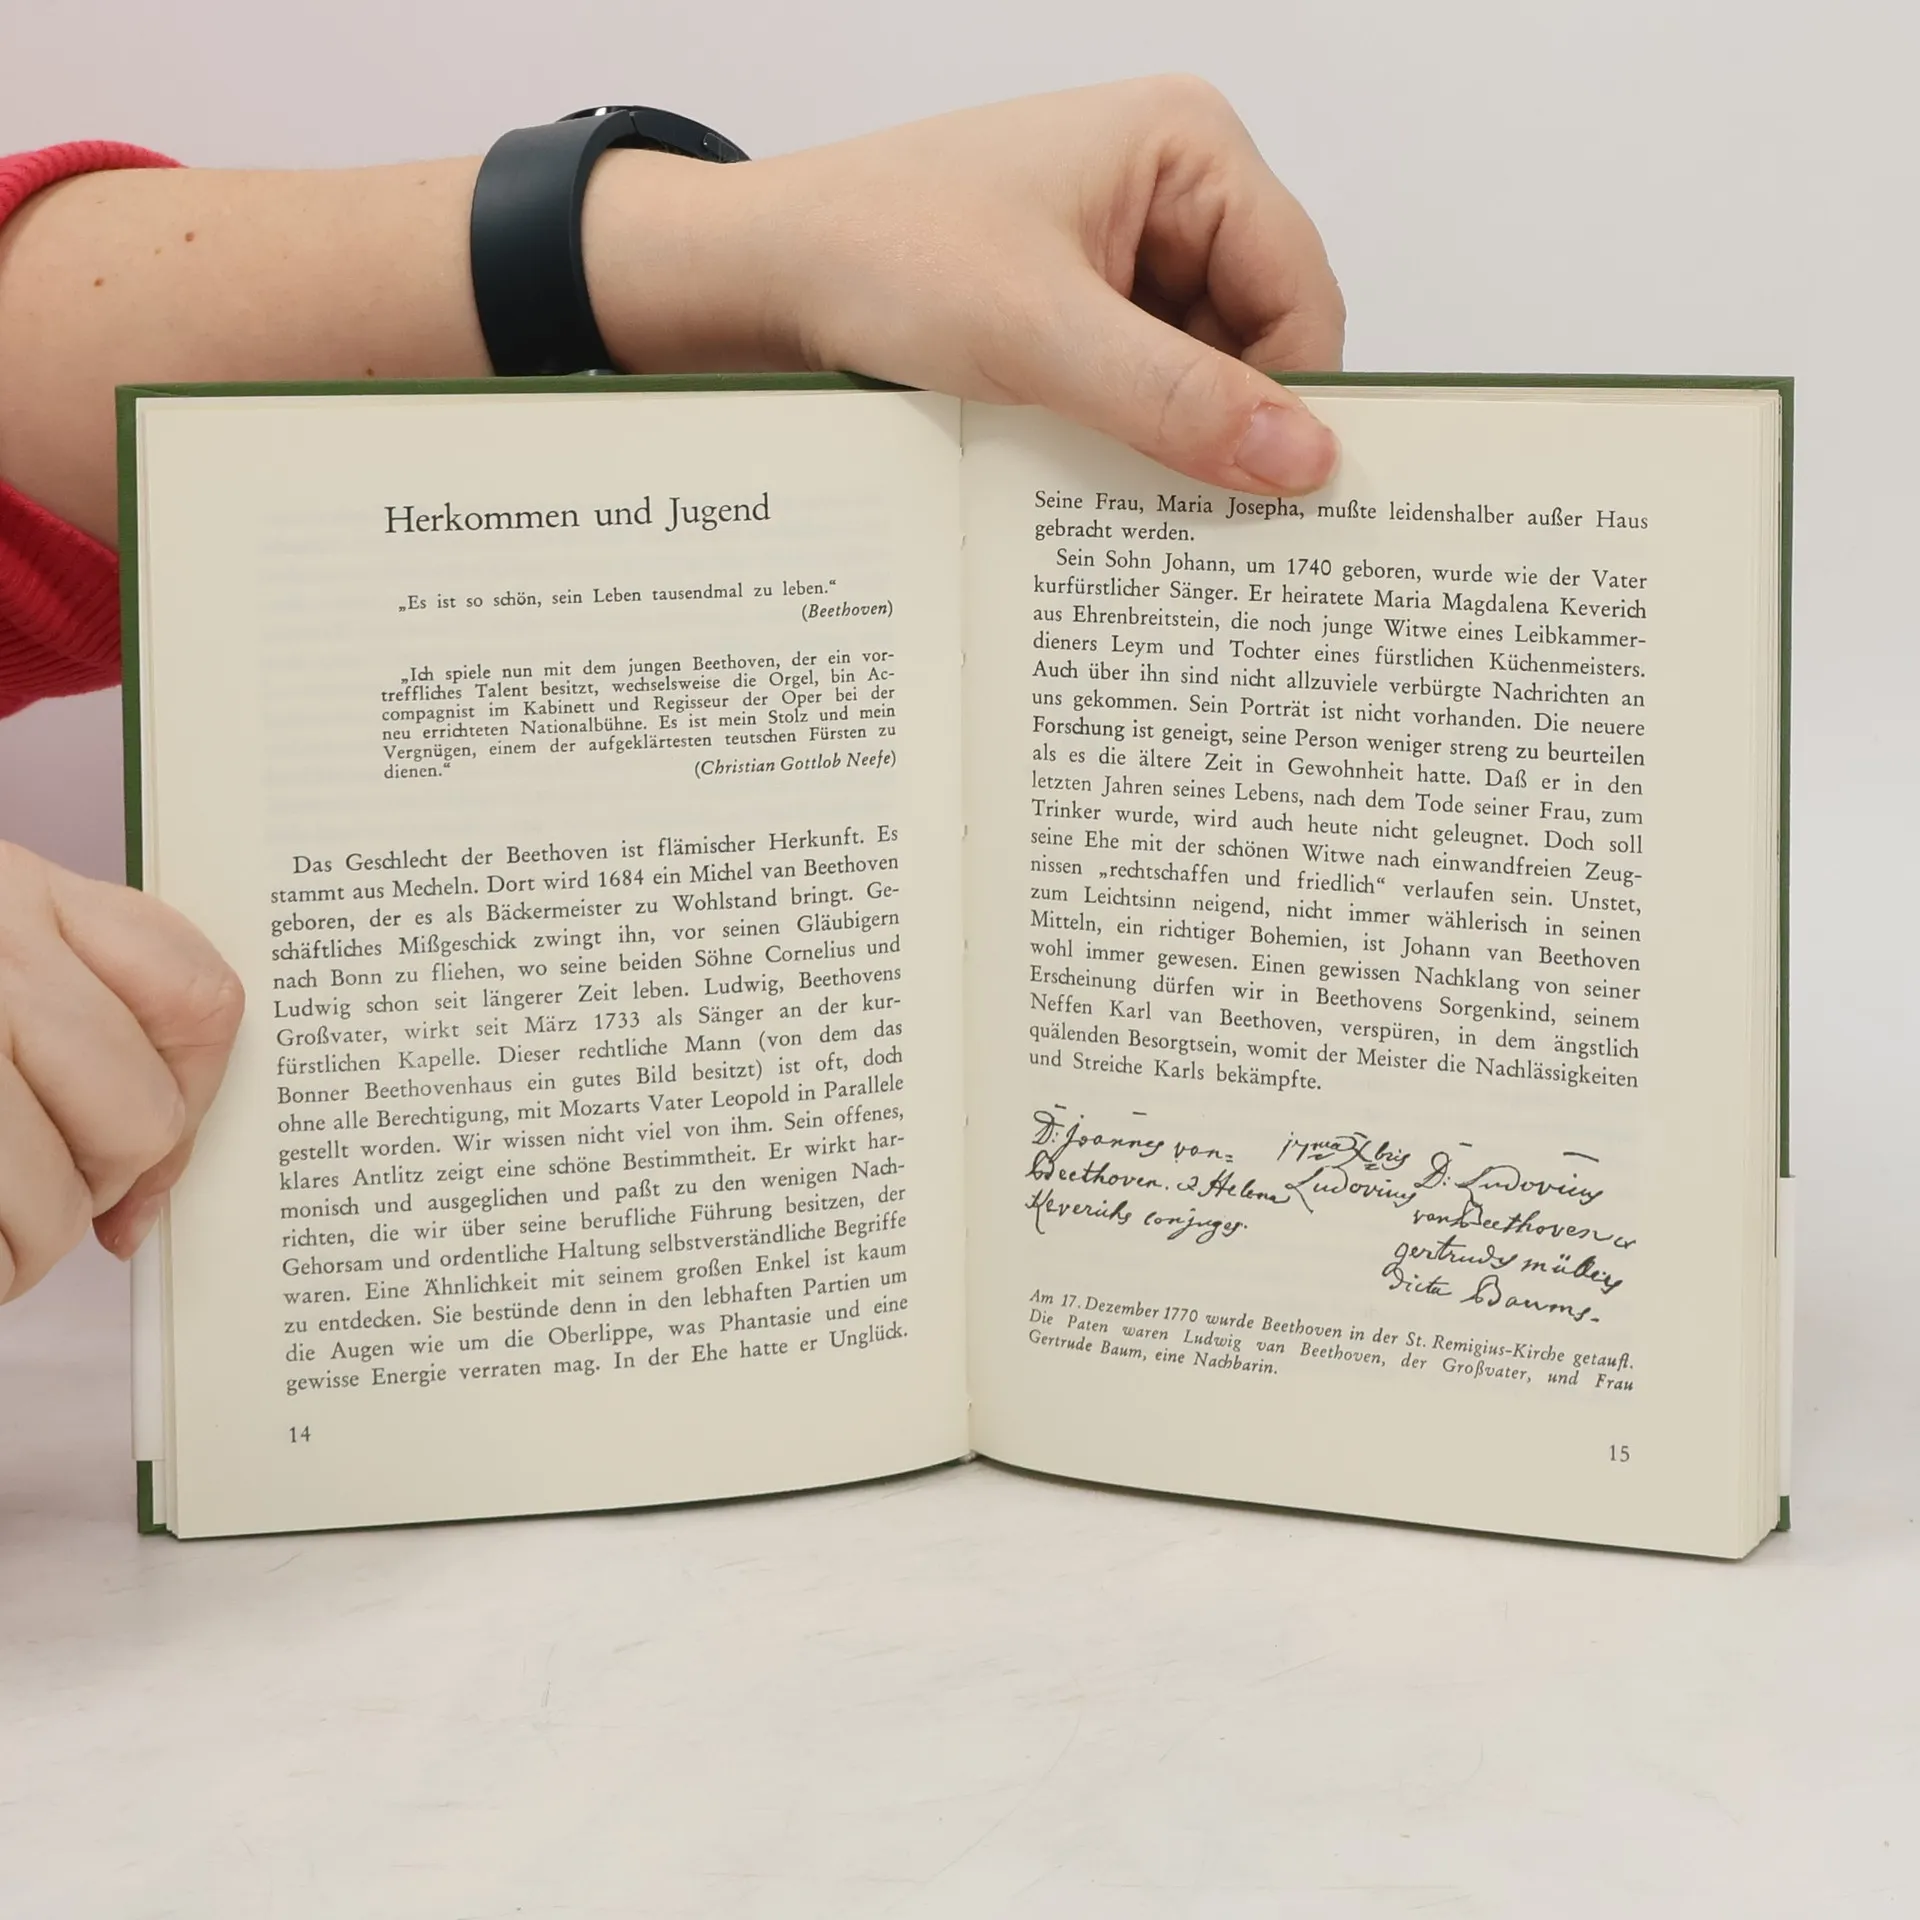 Herkommen und Jugend
„Es ist so schön, sein Leben tausendmal zu leben.“
(Beethoven)
„Ich spiele nun mit dem jungen Beethoven, der ein vor-
treffliches Talent besitzt, wechselsweise die Orgel, bin Ac-
compagnist im Kabinett und Regisseur der Oper bei der
neu errichteten Nationalbühne. Es ist mein Stolz und mein
Vergnügen, einem der aufgeklärtesten teutschen Fürsten zu
dienen.“ (Christian Gottlob Neefe)
Das Geschlecht der Beethoven ist flämischer Herkunft. Es
stammt aus Mecheln. Dort wird 1684 ein Michel van Beethoven
geboren, der es als Bäckermeister zu Wohlstand bringt. Ge-
schäftliches Mißgeschick zwingt ihn, vor seinen Gläubigern
nach Bonn zu fliehen, wo seine beiden Söhne Cornelius und
Ludwig schon seit längerer Zeit leben. Ludwig, Beethovens
Großvater, wirkt seit März 1733 als Sänger an der kur-
fürstlichen Kapelle. Dieser rechtliche Mann (von dem das
Bonner Beethovenhaus ein gutes Bild besitzt) ist oft, doch
ohne alle Berechtigung, mit Mozarts Vater Leopold in Parallele
gestellt worden. Wir wissen nicht viel von ihm. Sein offenes,
klares Antlitz zeigt eine schöne Bestimmtheit. Er wirkt har-
monisch und ausgeglichen und paßt zu den wenigen Nach-
richten, die wir über seine berufliche Führung besitzen, der
Gehorsam und ordentliche Haltung selbstverständliche Begriffe
waren. Eine Ähnlichkeit mit seinem großen Enkel ist kaum
zu entdecken. Sie bestünde denn in den lebhaften Partien um
die Augen wie um die Oberlippe, was Phantasie und eine
gewisse Energie verraten mag. In der Ehe hatte er Unglück.
14
Seine Frau, Maria Josepha, mußte leidenshalber außer Haus
gebracht werden.
Sein Sohn Johann, um 1740 geboren, wurde wie der Vater
kurfürstlicher Sänger. Er heiratete Maria Magdalena Keverich
aus Ehrenbreitstein, die noch junge Witwe eines Leibkammer-
dieners Leym und Tochter eines fürstlichen Küchenmeisters.
Auch über ihn sind nicht allzuviele verbürgte Nachrichten an
uns gekommen. Sein Porträt ist nicht vorhanden. Die neuere
Forschung ist geneigt, seine Person weniger streng zu beurteilen
als es die ältere Zeit in Gewohnheit hatte. Daß er in den
letzten Jahren seines Lebens, nach dem Tode seiner Frau, zum
Trinker wurde, wird auch heute nicht geleugnet. Doch soll
seine Ehe mit der schönen Witwe nach einwandfreien Zeug-
nissen „rechtschaffen und friedlich“ verlaufen sein. Unstet,
zum Leichtsinn neigend, nicht immer wählerisch in seinen
Mitteln, ein richtiger Bohemien, ist Johann van Beethoven
wohl immer gewesen. Einen gewissen Nachklang von seiner
Erscheinung dürfen wir in Beethovens Sorgenkind, seinem
Neffen Karl van Beethoven, verspüren, in dem ängstlich
quälenden Besorgtsein, womit der Meister die Nachlässigkeiten
und Streiche Karls bekämpfte.
D: Joannes van=
Beethoven. & Helena
Keverichs conjuges.
17ma Xbris
Ludovicus
D: Ludovicus
van Beethoven &
gertrudis müllers
dicta Baums.
Am 17. Dezember 1770 wurde Beethoven in der St. Remigius-Kirche getauft.
Die Paten waren Ludwig van Beethoven, der Großvater, und Frau
Gertrude Baum, eine Nachbarin.
15